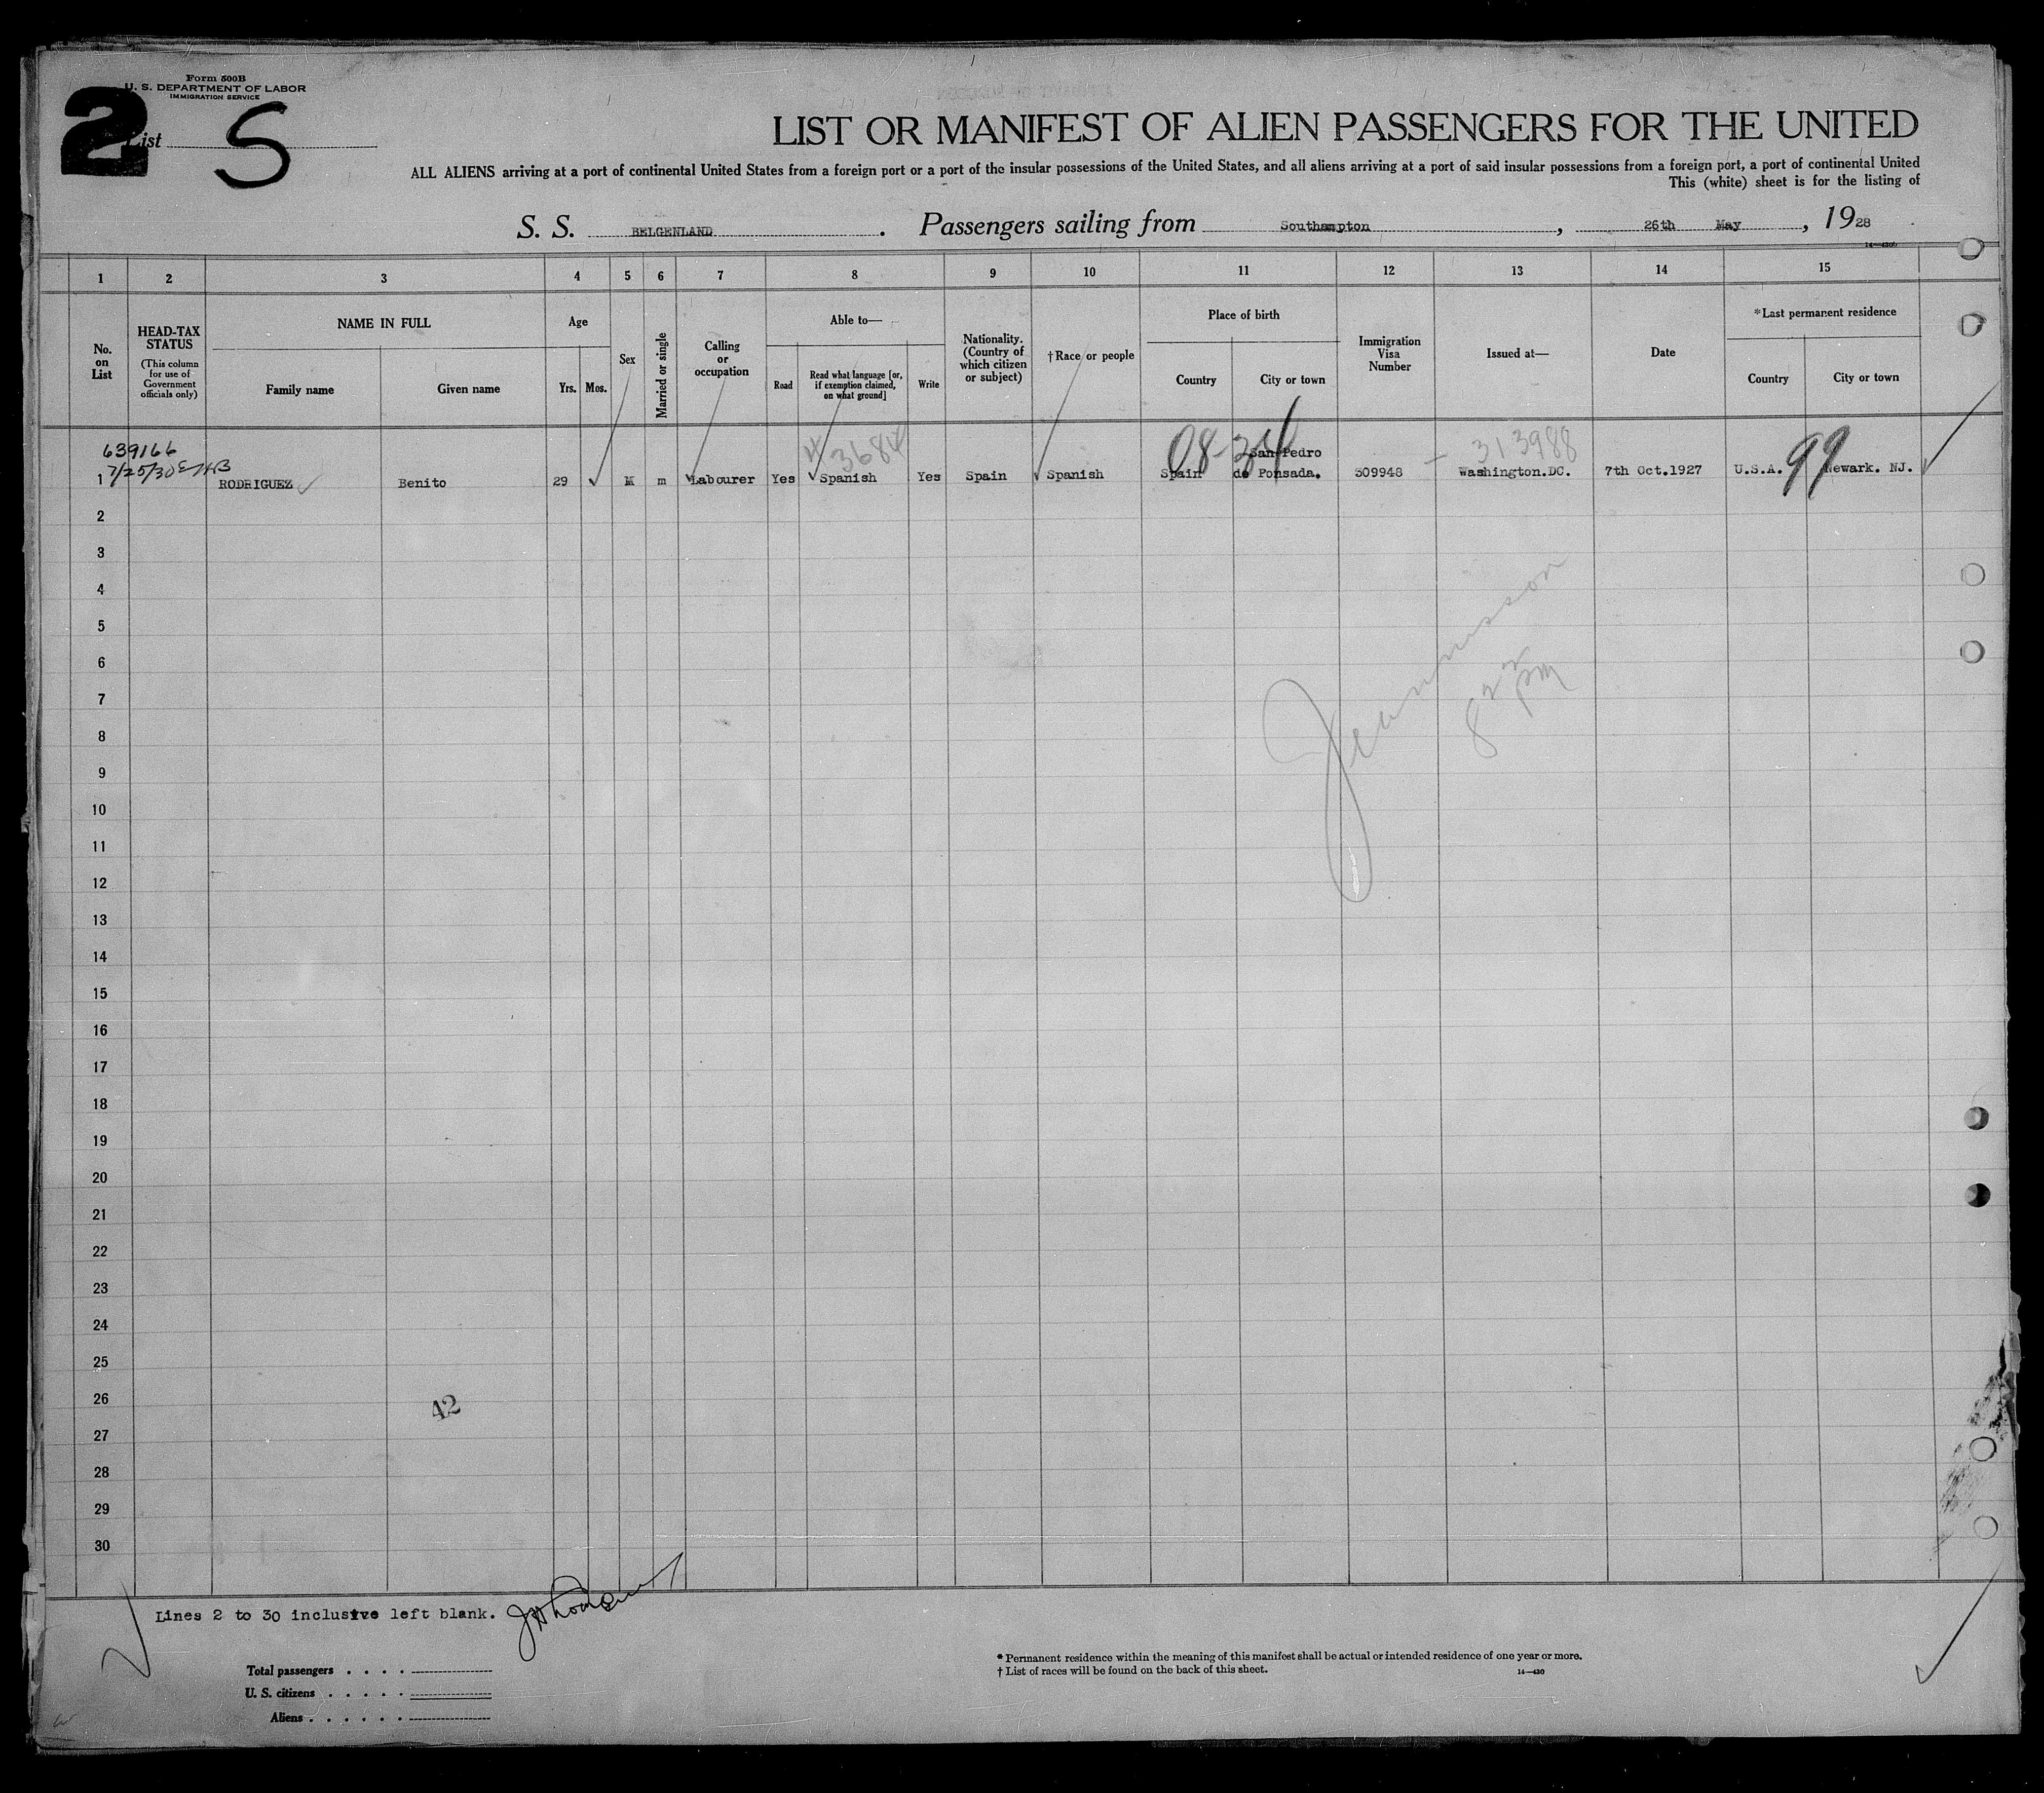 Form 500B
U. S. DEPARTMENT OF LABOR
IMMIGRATION SERVICE
2
List S
LIST OR MANIFEST OF ALIEN PASSENGERS FOR THE UNITED
ALL ALIENS arriving at a port of continental United States from a foreign port or a port of the insular possessions of the United States, and all aliens arriving at a port of said insular possessions from a foreign port, a port of continental United
This (white) sheet is for the listing of
S. S. BELGENLAND. Passengers sailing from Southampton, 26th May, 1928
1 2 3 4 5 6 7 8 9 10 11 12 13 14 15
No. on List
HEAD-TAX STATUS
(This column for use of Government officials only)
NAME IN FULL
Family name Given name
Age
Yrs. Mos.
Sex
Married or single
Calling or occupation
Able to—
Read
Read what language [or, if exemption claimed, on what ground]
Write
Nationality. (Country of which citizen or subject)
†Race or people
Place of birth
Country City or town
Immigration Visa Number
Issued at—
Date
*Last permanent residence
Country City or town
639166
7/25/30
08- 313988 99
1 RODRIGUEZ Benito 29 M m Labourer Yes Spanish Yes Spain Spanish Spain San Pedro de Ponsada. 309948 Washington.DC. 7th Oct.1927 U.S.A. Newark. NJ.
2
3
4
5
6
7
8
9
10
11
12
13
14
15
16
17
18
19
20
21
22
23
24
25
26
27
28
29
30
8 pm
42
Lines 2 to 30 inclusive left blank.
Total passengers
U. S. citizens
Aliens
* Permanent residence within the meaning of this manifest shall be actual or intended residence of one year or more.
† List of races will be found on the back of this sheet.
14—430